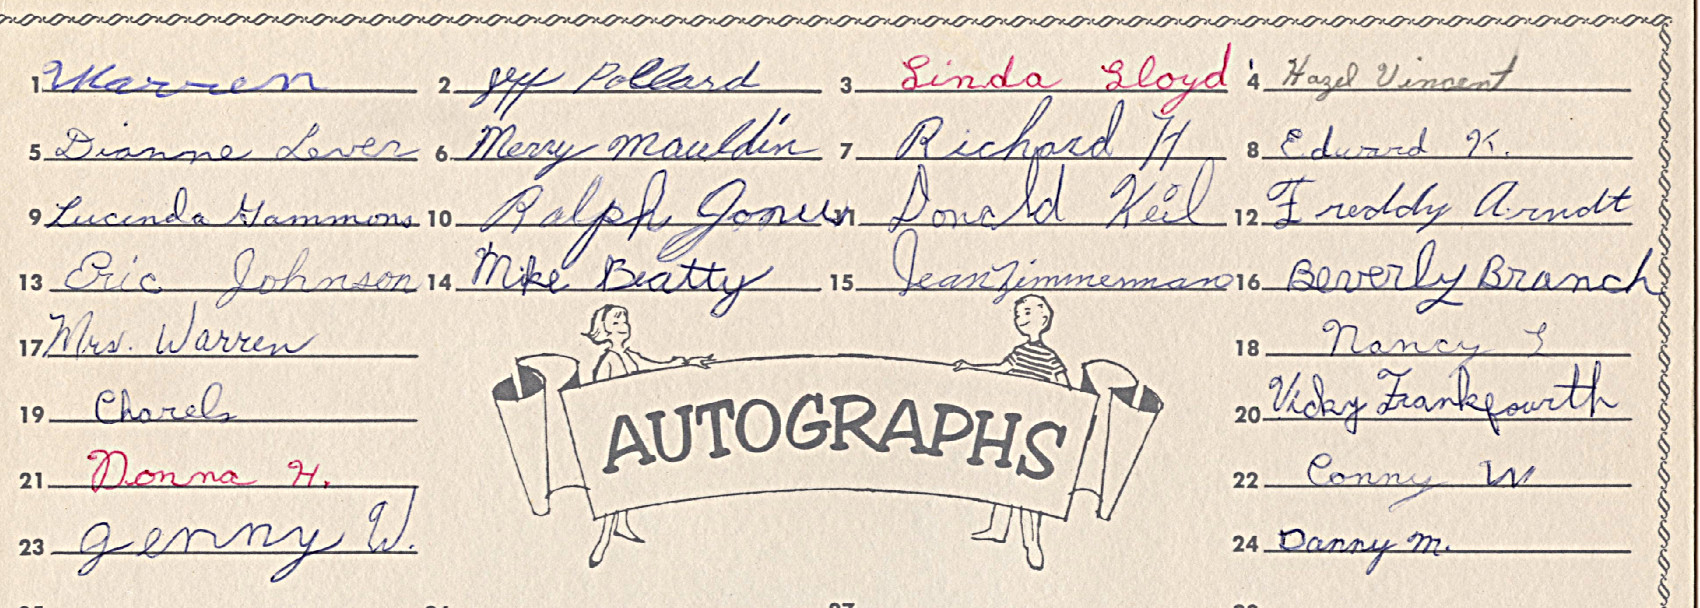 1 Warren 2 Jeff Pollard 3 Linda Lloyd 4 Hazel Vincent
5 Dianne Lever 6 Merry Mauldin 7 Richard H 8 Edward K.
9 Lucinda Gammons 10 Ralph Jones 11 Donald Keil 12 Freddy Arndt
13 Eric Johnson 14 Mike Beatty 15 Jean Zimmerman 16 Beverly Branch
17 Mrs. Warren 18 Nancy L
19 Charels 20 Vicky Frankfourth
AUTOGRAPHS
21 Donna H. 22 Conny W
23 Genny W. 24 Danny M.